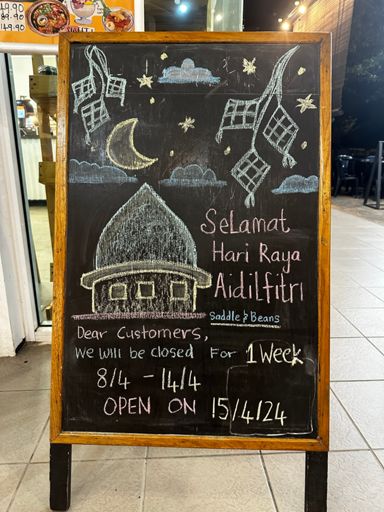 49.90
89.90
149.90
Selamat
Hari Raya
Aidilfitri
Saddle & Beans
Dear Customers,
We will be closed for 1 Week
8/4 - 14/4
OPEN ON 15/4/24